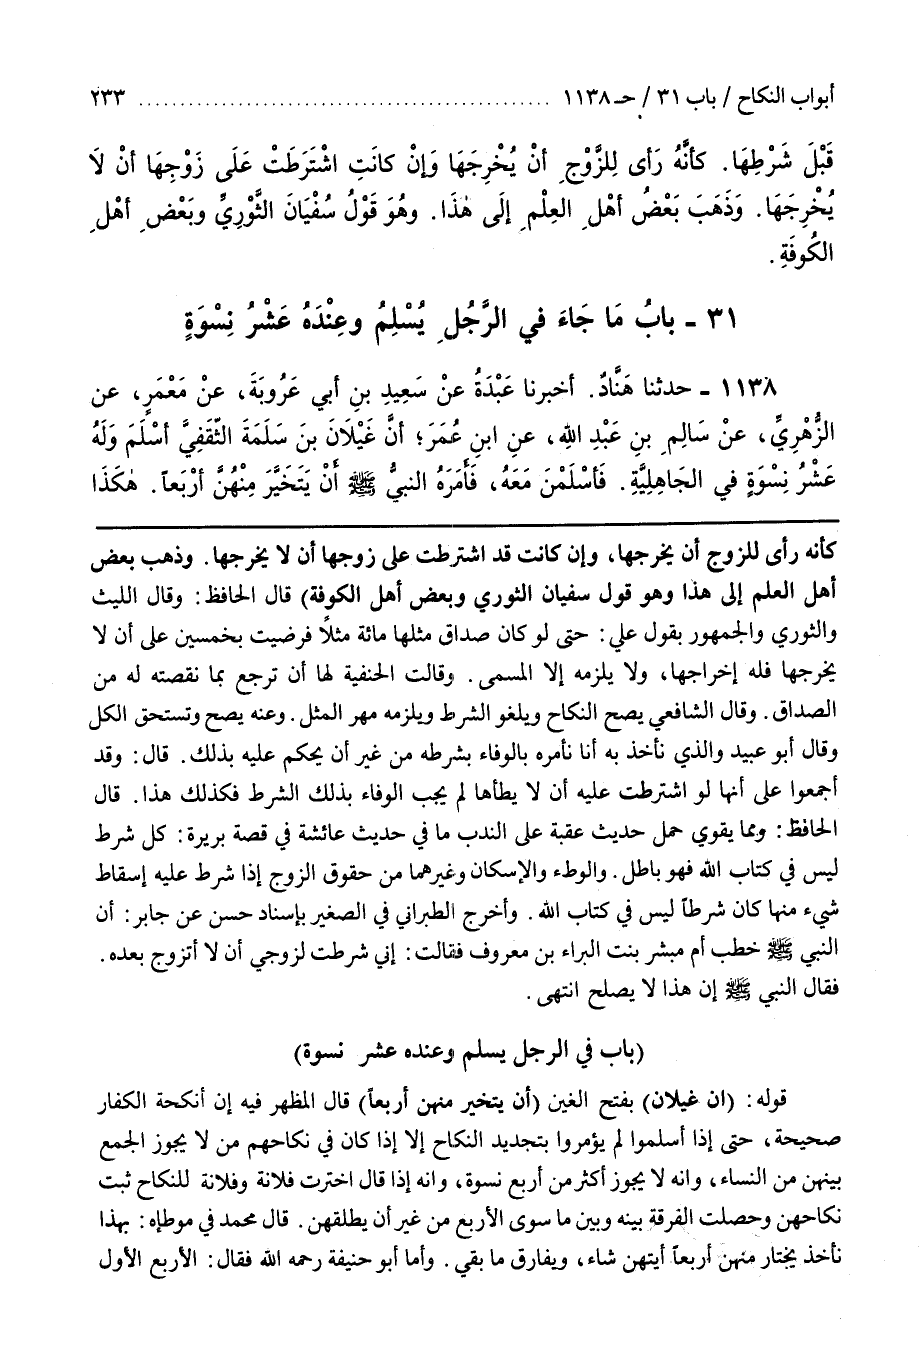 أبواب النكاح / باب ٣١ / حـ ١١٣٨ ............................................................ ٢٣٣
قَبْلَ شَرْطِهَا. كأنَّهُ رَأى لِلزَّوْجِ أنْ يُخْرِجَهَا وَإنْ كانَتِ اشْتَرَطَتْ عَلَى زَوْجِهَا أنْ لَا
يُخْرِجَهَا. وَذَهَبَ بَعْضُ أهْلِ العِلْمِ إلَى هٰذَا. وهُوَ قَوْلُ سُفْيَانَ الثَّوْرِيِّ وبَعْضِ أهْلِ
الكُوفَةِ.
٣١ - بابُ مَا جَاءَ في الرَّجُلِ يُسْلِمُ وعِنْدَهُ عَشْرُ نِسْوَةٍ
١١٣٨ - حدثنا هَنَّادٌ. أخبرنا عَبْدَةُ عنْ سَعِيدِ بنِ أبي عَرُوبَةَ، عنْ مَعْمَرٍ، عن
الزُّهْرِيِّ، عنْ سَالِمِ بنِ عَبْدِ اللهِ، عنِ ابنِ عُمَرَ؛ أنَّ غَيْلَانَ بنَ سَلَمَةَ الثَّقَفِيَّ أسْلَمَ وَلَهُ
عَشْرُ نِسْوَةٍ في الجَاهِلِيَّةِ. فَأسْلَمْنَ مَعَهُ، فَأَمَرَهُ النبيُّ ﷺ أَنْ يَتَخَيَّرَ مِنْهُنَّ أرْبَعاً. هٰكَذَا
كأنه رأى للزوج أن يخرجها، وإن كانت قد اشترطت على زوجها أن لا يخرجها. وذهب بعض
أهل العلم إلى هذا وهو قول سفيان الثوري وبعض أهل الكوفة) قال الحافظ: وقال الليث
والثوري والجمهور بقول علي: حتى لو كان صداق مثلها مائة مثلاً فرضيت بخمسين على أن لا
يخرجها فله إخراجها، ولا يلزمه إلا المسمى. وقالت الحنفية لها أن ترجع بما نقصته له من
الصداق. وقال الشافعي يصح النكاح ويلغو الشرط ويلزمه مهر المثل. وعنه يصح وتستحق الكل
وقال أبو عبيد والذي نأخذ به أنا نأمره بالوفاء بشرطه من غير أن يحكم عليه بذلك. قال: وقد
أجمعوا على أنها لو اشترطت عليه أن لا يطأها لم يجب الوفاء بذلك الشرط فكذلك هذا. قال
الحافظ: ومما يقوي حمل حديث عقبة على الندب ما في حديث عائشة في قصة بريرة: كل شرط
ليس في كتاب الله فهو باطل. والوطء والإسكان وغيرهما من حقوق الزوج إذا شرط عليه إسقاط
شيء منها كان شرطاً ليس في كتاب الله. وأخرج الطبراني في الصغير بإسناد حسن عن جابر: أن
النبي ﷺ خطب أم مبشر بنت البراء بن معروف فقالت: إني شرطت لزوجي أن لا أتزوج بعده.
فقال النبي ﷺ إن هذا لا يصلح انتهى.
(باب في الرجل يسلم وعنده عشر نسوة)
قوله: (ان غيلان) بفتح الغين (أن يتخير منهن أربعاً) قال المظهر فيه إن أنكحة الكفار
صحيحة، حتى إذا أسلموا لم يؤمروا بتجديد النكاح إلا إذا كان في نكاحهم من لا يجوز الجمع
بينهن من النساء، وانه لا يجوز أكثر من أربع نسوة، وانه إذا قال اخترت فلانة وفلانة للنكاح ثبت
نكاحهن وحصلت الفرقة بينه وبين ما سوى الأربع من غير أن يطلقهن. قال محمد في موطإه: بهذا
نأخذ يختار منهن أربعاً أيتهن شاء، ويفارق ما بقي. وأما أبو حنيفة رحمه الله فقال: الأربع الأول